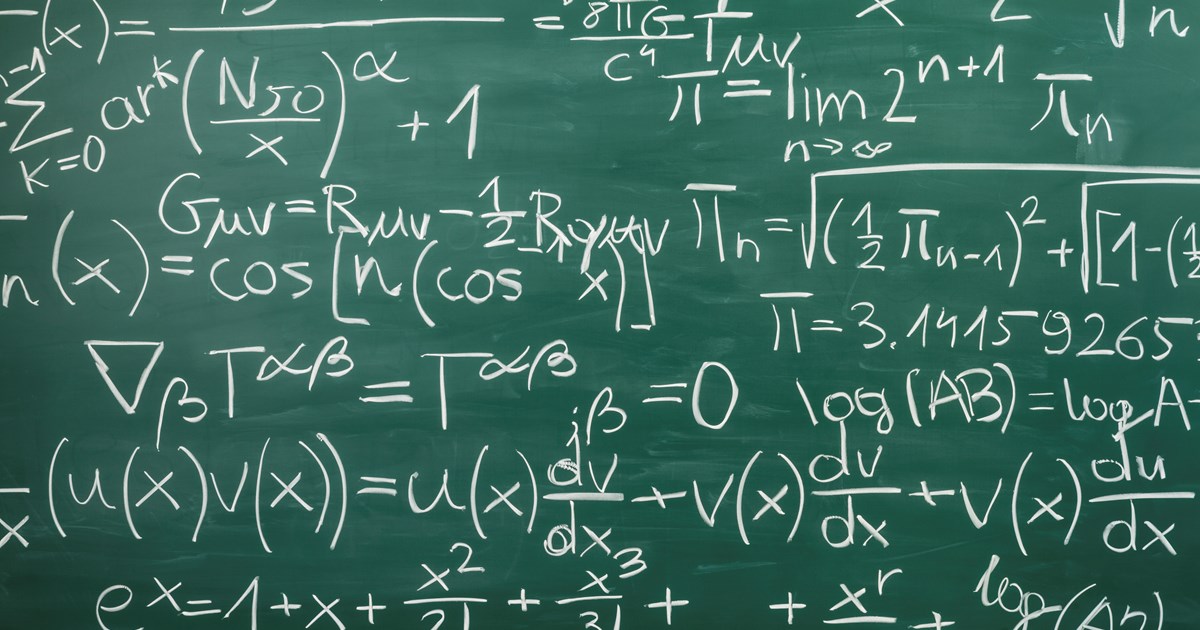 (x) =
= 8πG/c⁴ Tμν
x 2 √n
n-1 Σ k=0 ar^k (N50/x)^α + 1
π = lim n→∞ 2^(n+1) π_n
Gμν = Rμν - 1/2 R gμν
π_n = √((1/2 π_(n-1))² + √[1-(1/2
n(x) = cos[n(cos x)]
π = 3.1415 9265
∇_β T^αβ = T^αβ ;β = 0
log(AB) = log A -
x (u(x)v(x)) = u(x) dv/dx + v(x) dv/dx + v(x) du/dx
e^x = 1 + x + x²/2! + x³/3! + + x^r +
log(